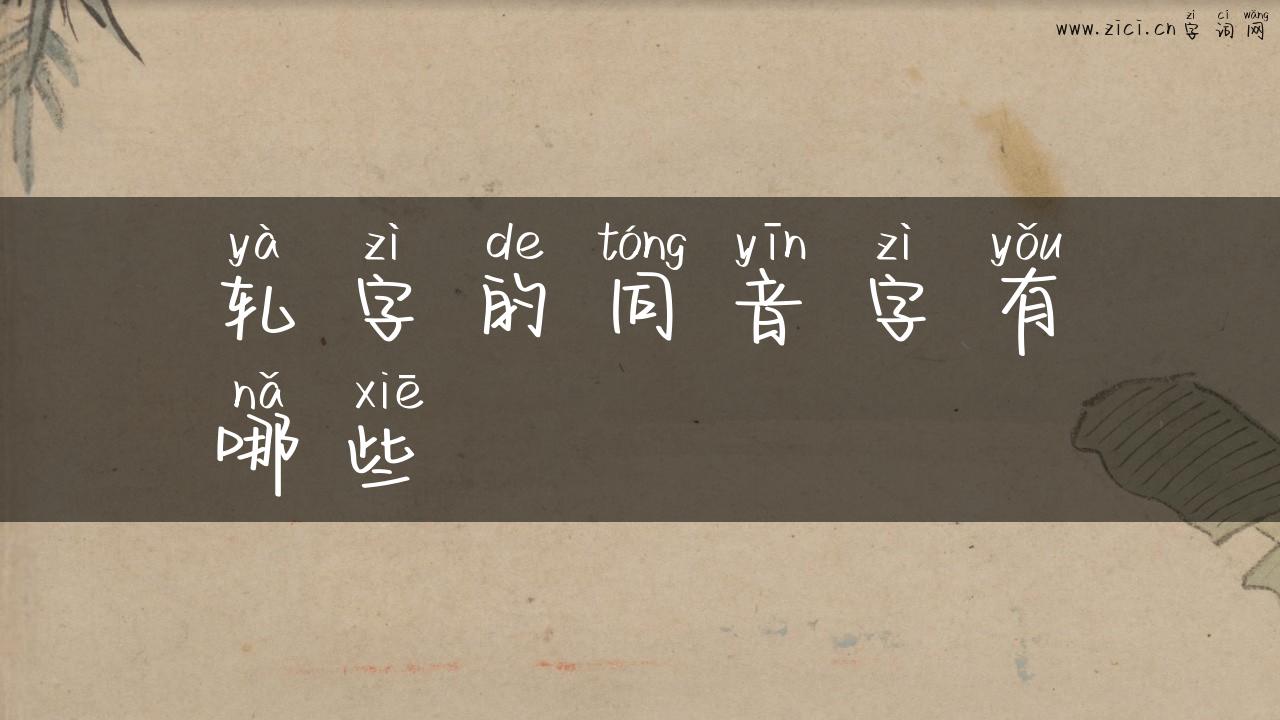 zì cí wǎng
www.zici.cn 字 词 网
yà zì de tóng yīn zì yǒu
轧 字 的 同 音 字 有
nǎ xiē
哪 些